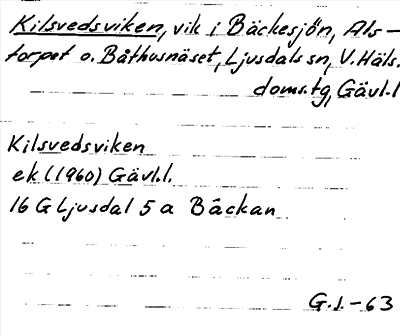 Kilsvedsviken, vik i Bäckesjön, Als-
torpet o. Båthusnäset, Ljusdals sn, V. Häls.
doms.tg, Gävl.l
Kilsvedsviken
ek (1960) Gävl.l.
16 G Ljusdal 5 a Bäckan
G.J.-63